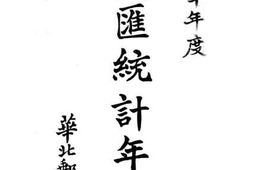 年度
匯統計年
華北郵